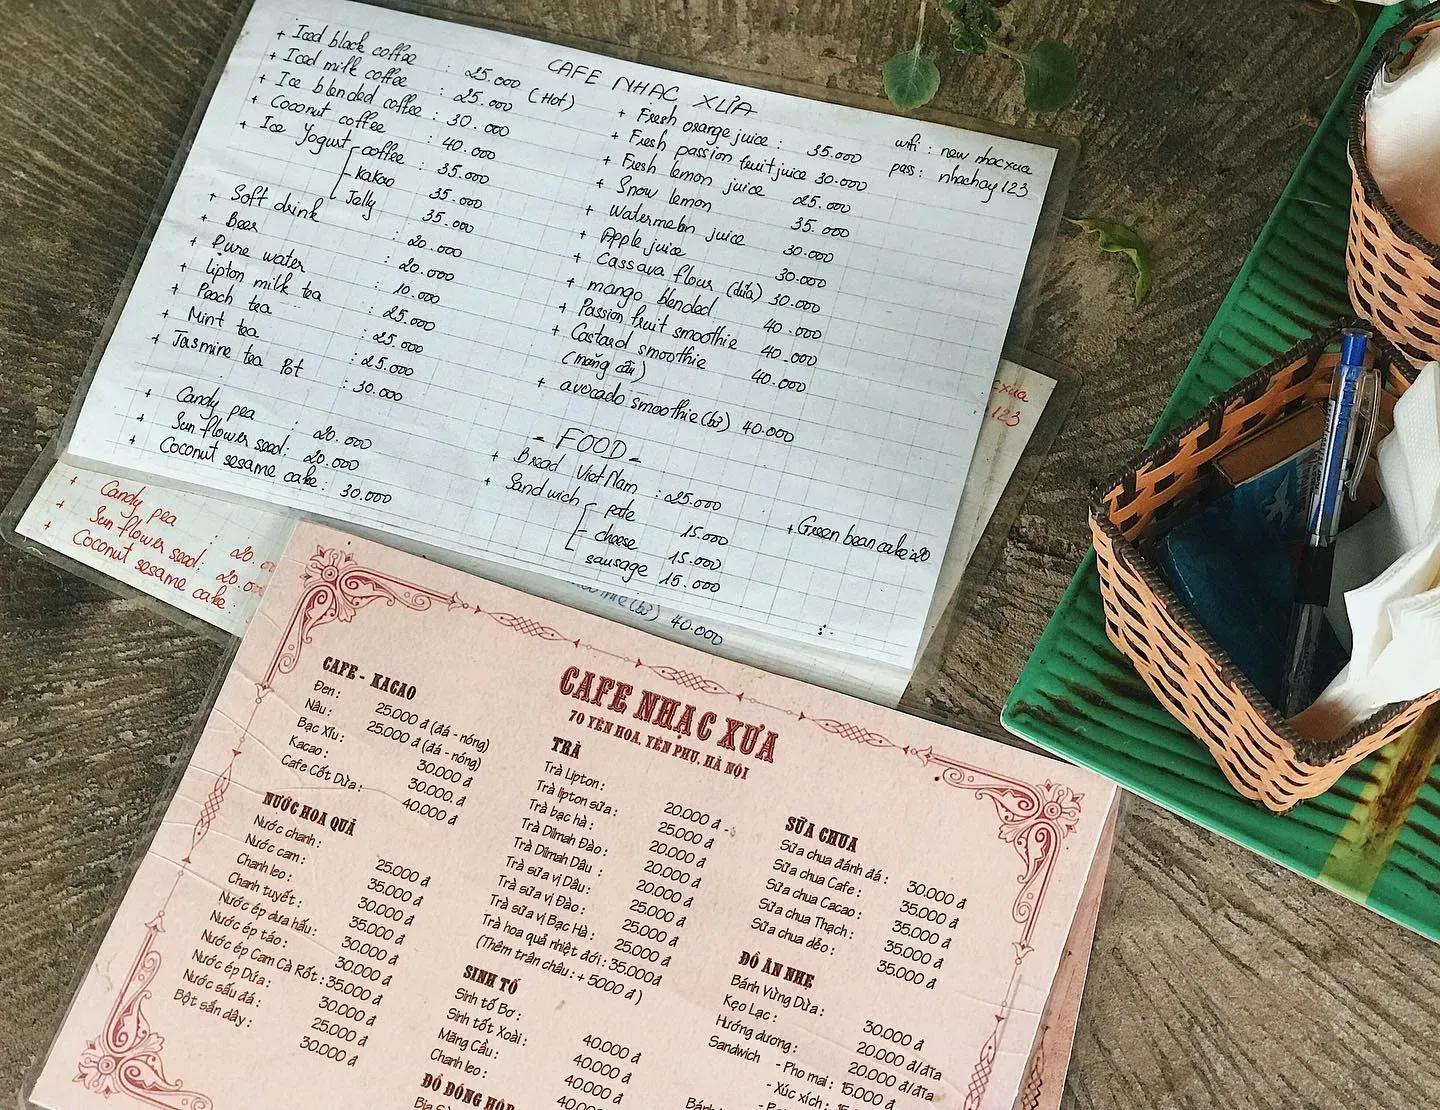 CAFE NHẠC XƯA
+ Iced black coffee : 25.000 (Hot)
+ Iced milk coffee : 25.000
+ Ice blended coffee : 30.000
+ Coconut coffee : 40.000
+ Ice Yogurt - coffee : 35.000
- Kakao 35.000
Jelly 35.000
+ Soft drink : 20.000
+ Beer : 20.000
+ Pure water : 10.000
+ Lipton milk tea : 25.000
+ Peach tea : 25.000
+ Mint tea : 25.000
+ Jasmine tea Pot : 30.000
+ Candy pea : 20.000
+ Sun flower seed: 20.000
+ Coconut sesame cake : 30.000
+ Fresh orange juice : 35.000
+ Fresh passion fruit juice 30.000
+ Fresh lemon juice 25.000
+ Snow lemon 35.000
+ Watermelon juice 30.000
+ Apple juice 30.000
+ Cassava flour (dứa) 30.000
+ mango blended 40.000
+ Passion fruit smoothie 40.000
+ Custard smoothie 40.000
(mãng cầu)
+ avocado smoothie (bơ) 40.000
- FOOD -
+ Bread Viet Nam : 25.000
+ Sandwich pate 15.000
- cheese 15.000
sausage 15.000
wifi : new nhacxua
pass : nhachay123
+ Green bean cake 20
xua
123
+ Candy pea : 20.
+ Sun flower seed: 20.
+ Coconut sesame cake :
smoothie (bơ) 40.000
CAFE NHẠC XƯA
70 YÊN HOA, YÊN PHỤ, HÀ NỘI
CAFE - KACAO
Đen : 25.000 đ (đá - nóng)
Nâu : 25.000 đ (đá - nóng)
Bạc Xỉu : 30.000 đ
Kacao : 30.000. đ
Cafe Cốt Dừa : 40.000 đ
NƯỚC HOA QUẢ
Nước chanh : 25.000 đ
Nước cam : 35.000 đ
Chanh leo : 30.000 đ
Chanh tuyết : 35.000 đ
Nước ép dưa hấu : 30.000 đ
Nước ép táo : 30.000 đ
Nước ép Cam Cà Rốt : 35.000 đ
Nước ép Dứa : 30.000 đ
Nước sấu đá : 25.000 đ
Bột sắn dây : 30.000 đ
TRÀ
Trà Lipton : 20.000 đ
Trà lipton sữa : 25.000 đ
Trà bạc hà : 20.000 đ
Trà Dilmah Đào : 20.000 đ
Trà Dilmah Dâu : 20.000 đ
Trà sữa vị Dâu : 25.000 đ
Trà sữa vị Đào : 25.000 đ
Trà sữa vị Bạc Hà : 25.000 đ
Trà hoa quả nhiệt đới : 35.000đ
(Thêm trân châu : + 5000 đ)
SINH TỐ
Sinh tố Bơ : 40.000 đ
Sinh tốt Xoài : 40.000 đ
Mãng Cầu : 40.000 đ
Chanh leo : 40.000
ĐỒ ĐÓNG HỘP
SỮA CHUA
Sữa chua đánh đá : 30.000 đ
Sữa chua Cafe : 35.000 đ
Sữa chua Cacao : 35.000 đ
Sữa chua Thạch : 35.000 đ
Sữa chua dẻo : 35.000 đ
ĐỒ ĂN NHẸ
Bánh Vừng Dừa : 30.000 đ
Kẹo Lạc : 20.000 đ/đĩa
Hướng dương : 20.000 đ/đĩa
Sandwich - Pho mai : 15.000 đ
- Xúc xích :